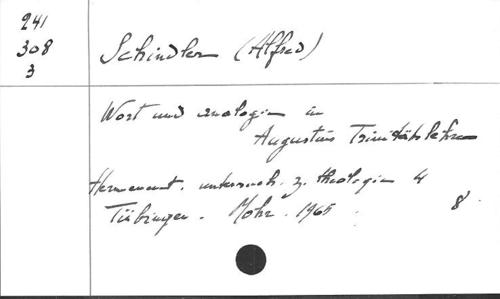 241
308
3
Schindler (Alfred)
Wort und analogie in
Augustins Trinitätslehre
Hermeneut. untersuch. z. theologie 4
Tübingen. Mohr. 1965 8°